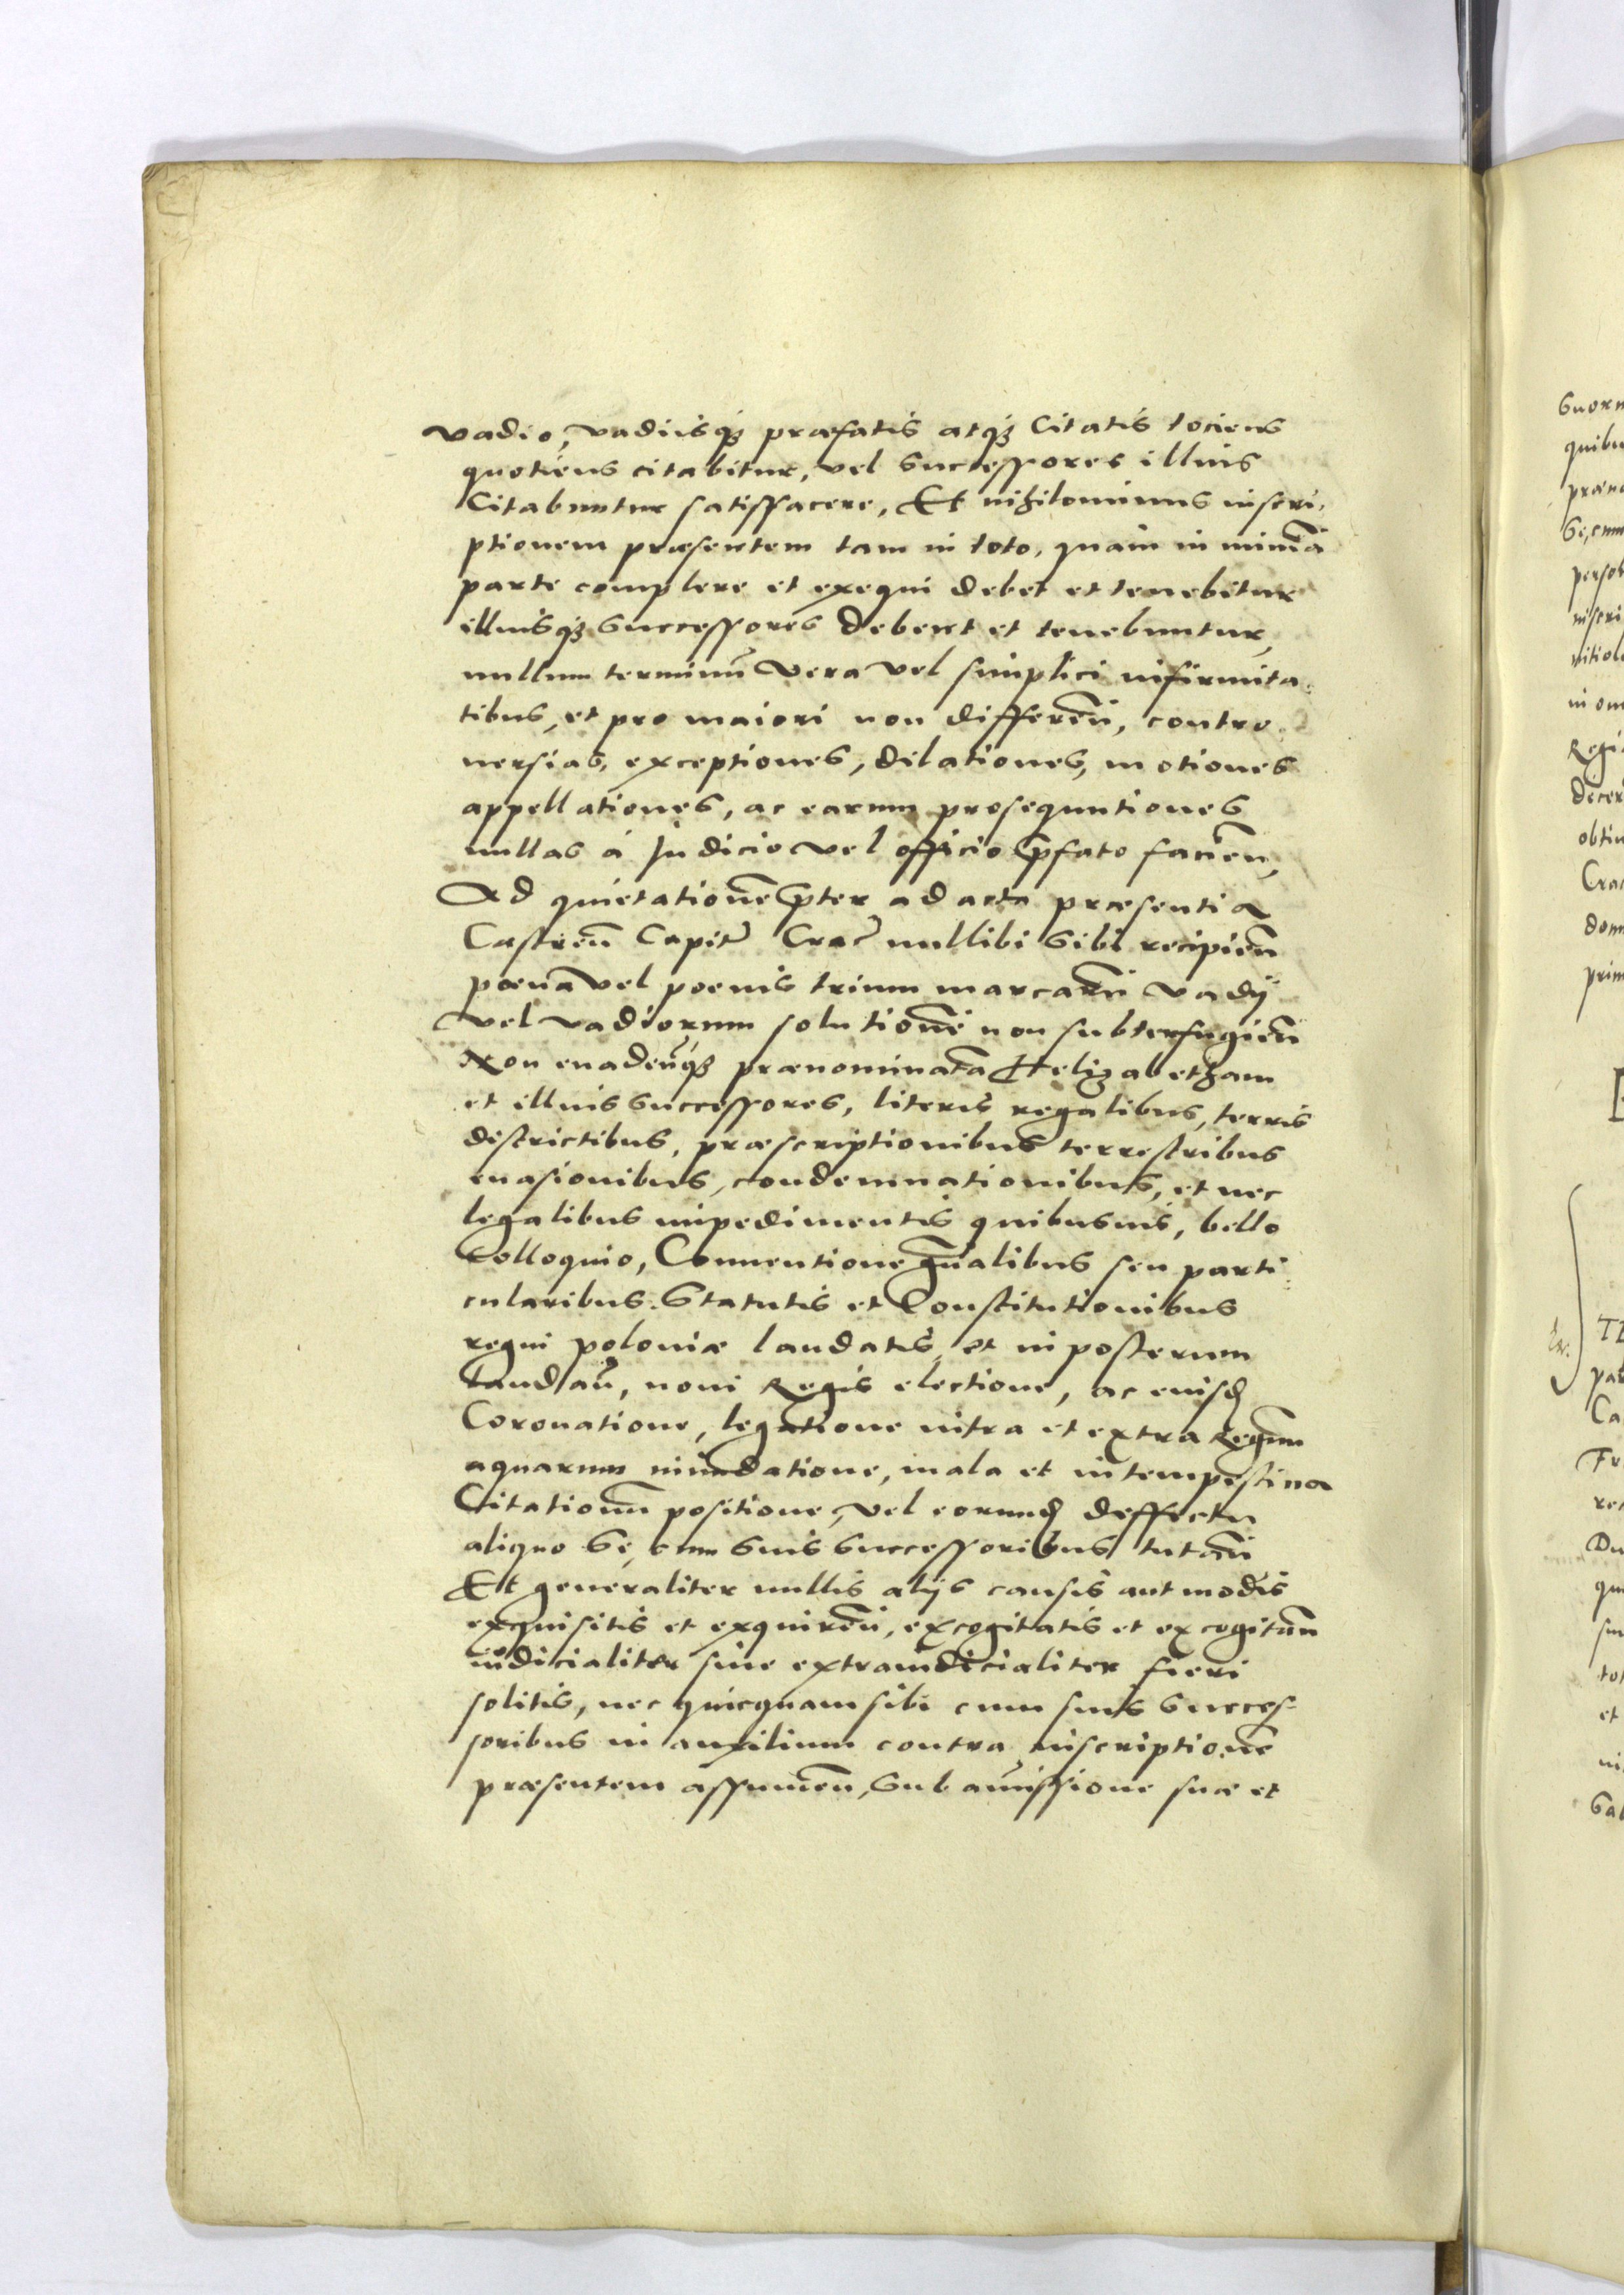 vadio, vadiisqꝫ præfatis atqꝫ Citatis tociens
quotiens citabitur, vel successores illius
Citabuntur satisfacere, Et nihilominus inscri-
ptionem præsentem tam in toto, quam in minīa
parte complere et exequi debet et tenebitur
illiusqꝫ successores debent et tenebuntur,
nullum terminū vera vel simplici infirmita-
tibus, et pro maiori non differēn, contro-
uersias, exceptiones, dilationes, motiones
appellationes, ac earum prosequutiones
nullas á Judicio vel officio p̄fato facien̄,
Ad quietationē p̄ter ad acta præsentia
Castreñ Capit̃ Crac̃ nullibi sibi recipien̄
pœna vel poenis trium marcarū vadij
vel vadiorum solutionē non subterfugien̄
Non euaden̄qꝫ prænominatā Helizabetham
et illius successores, literis regalibus, terris
districtibus, præscriptionibus terrestribus
euasionibus, condemnationibus, et nec
legalibus impedimentis quibusuis, bello
Colloquio, Conuentione gn̄alibus seu parti-
cularibus. Statutis et Constitutionibus
regni poloniæ laudatis, et in posterum
laudan̄, noui Regis electione, ac euisd
Coronatione, legatione intra et extra Regnum
aquarum inundatione, mala et intempestiua
Citationū positione, vel eorund deffectu
aliquo se, cum suis successoribus tutan̄
Et generaliter nullis alijs causis aut modis
exquisitis et exquiren̄, excogitatis et excogitan̄
iudicialiter siue extraiudicialiter fieri
solitis, nec quicquam sibi cum suis succes-
soribus in auxilium contra inscriptionē
præsentem assumen̄, sub amissione suæ et